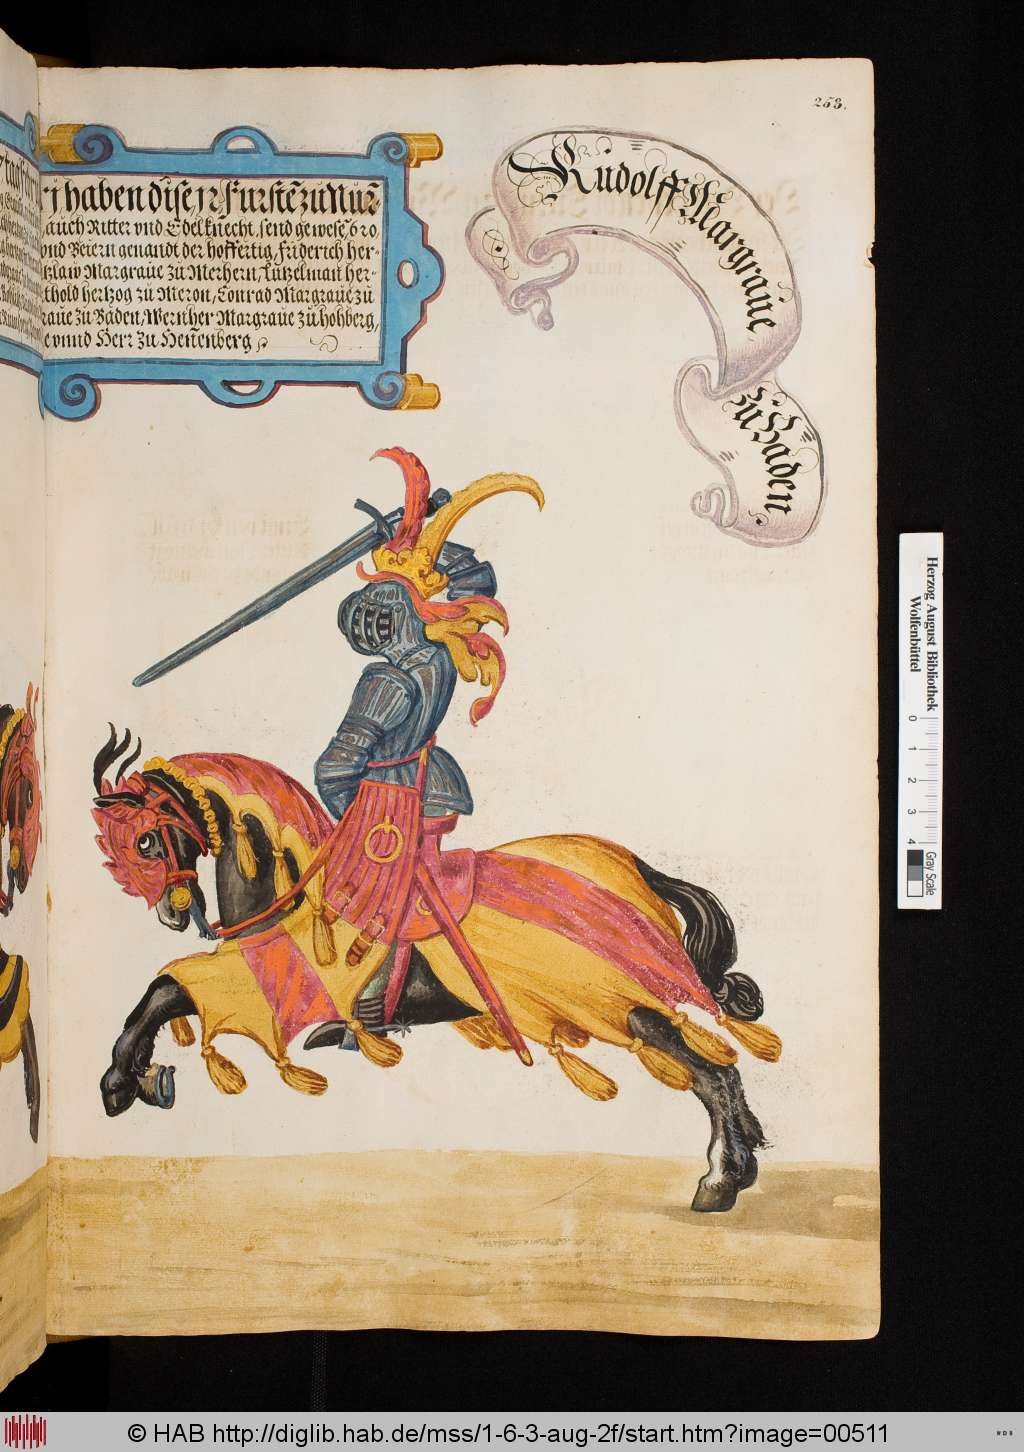 258.
haben dise, jr Fürstē zu Nür̄
auch Ritter vnd Edelknecht, send gewese, 620
vnd Beiern genandt der hoffertig, Friderich her-
tzlaw Margraue zu Merhern, Lützelman her-
thold hertzog zu Meron, Conrad Margraue zu
raue zu Baden, Wernher Margraue zu Hohberg,
e vnnd Herr zu Hennenberg
Rudolff Margraue
zu Baden
Herzog August Bibliothek
Wolfenbüttel
0 1 2 3 4
Gray Scale
© HAB http://diglib.hab.de/mss/1-6-3-aug-2f/start.htm?image=00511